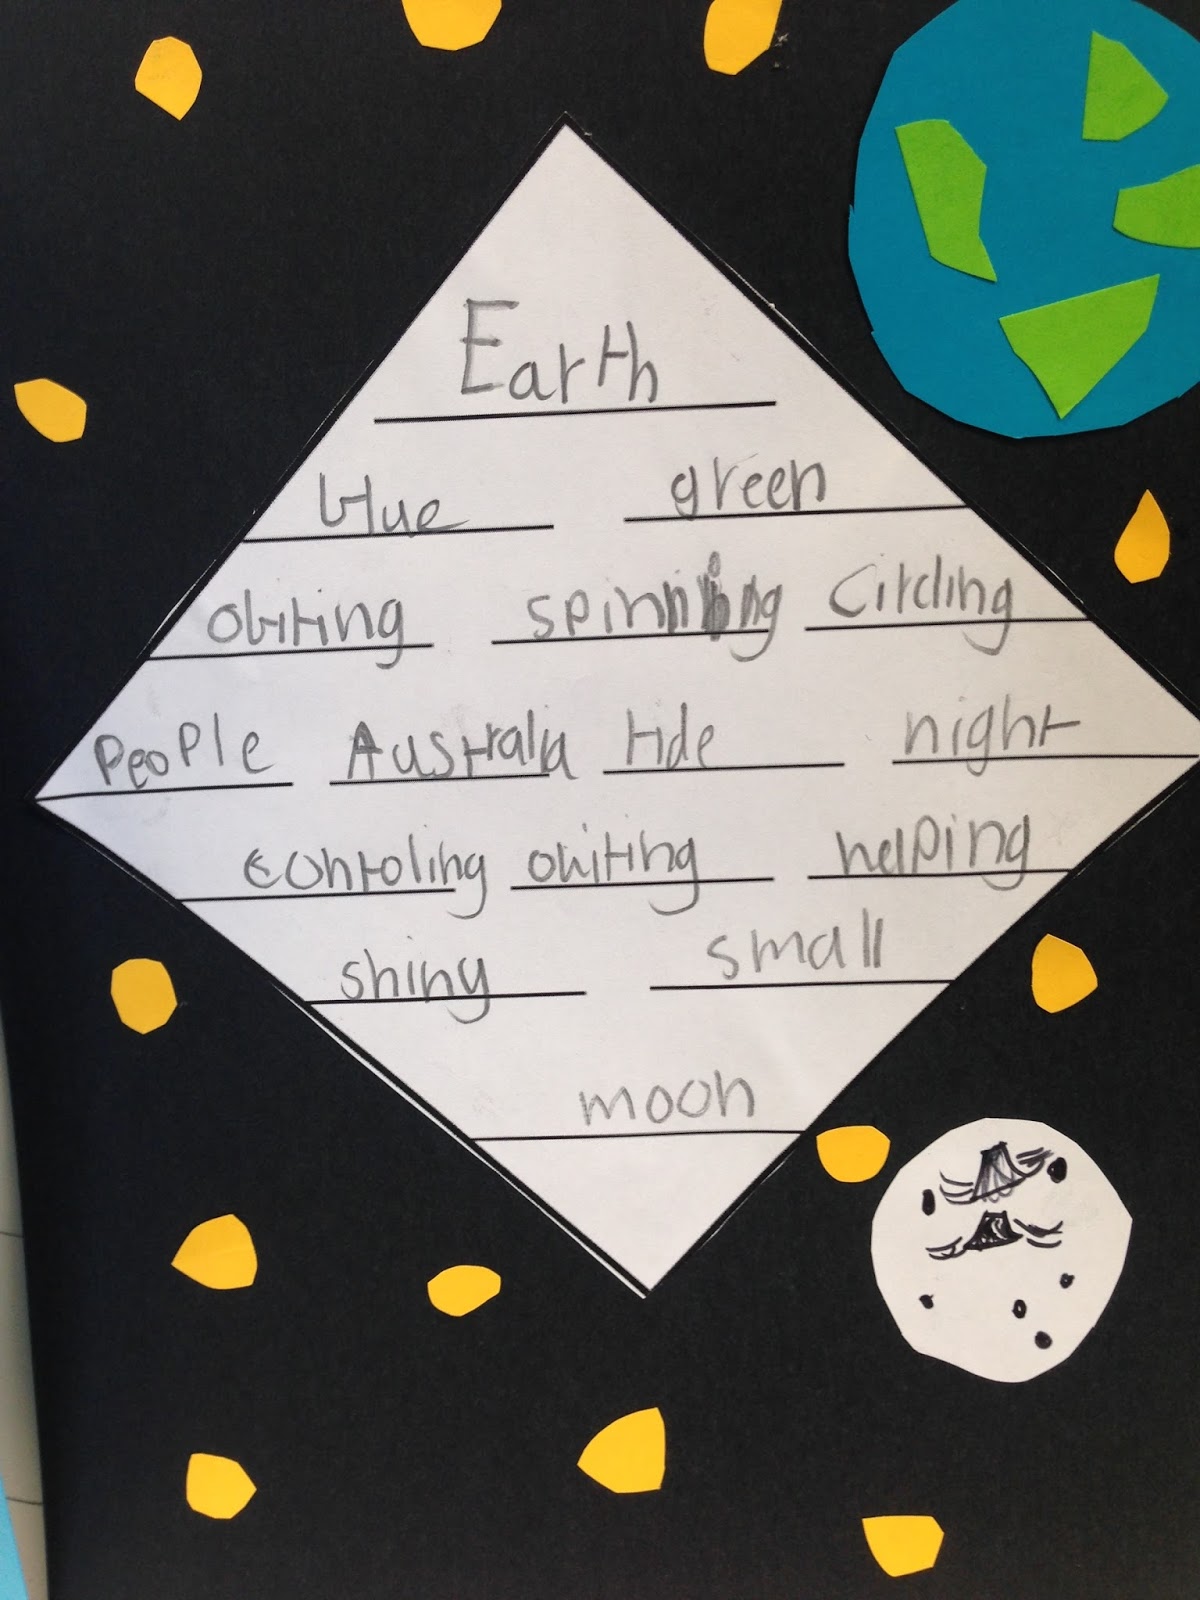 Earth
blue green
obiting spinning Circling
People Australia tide night
controling obiting helping
shiny small
moon